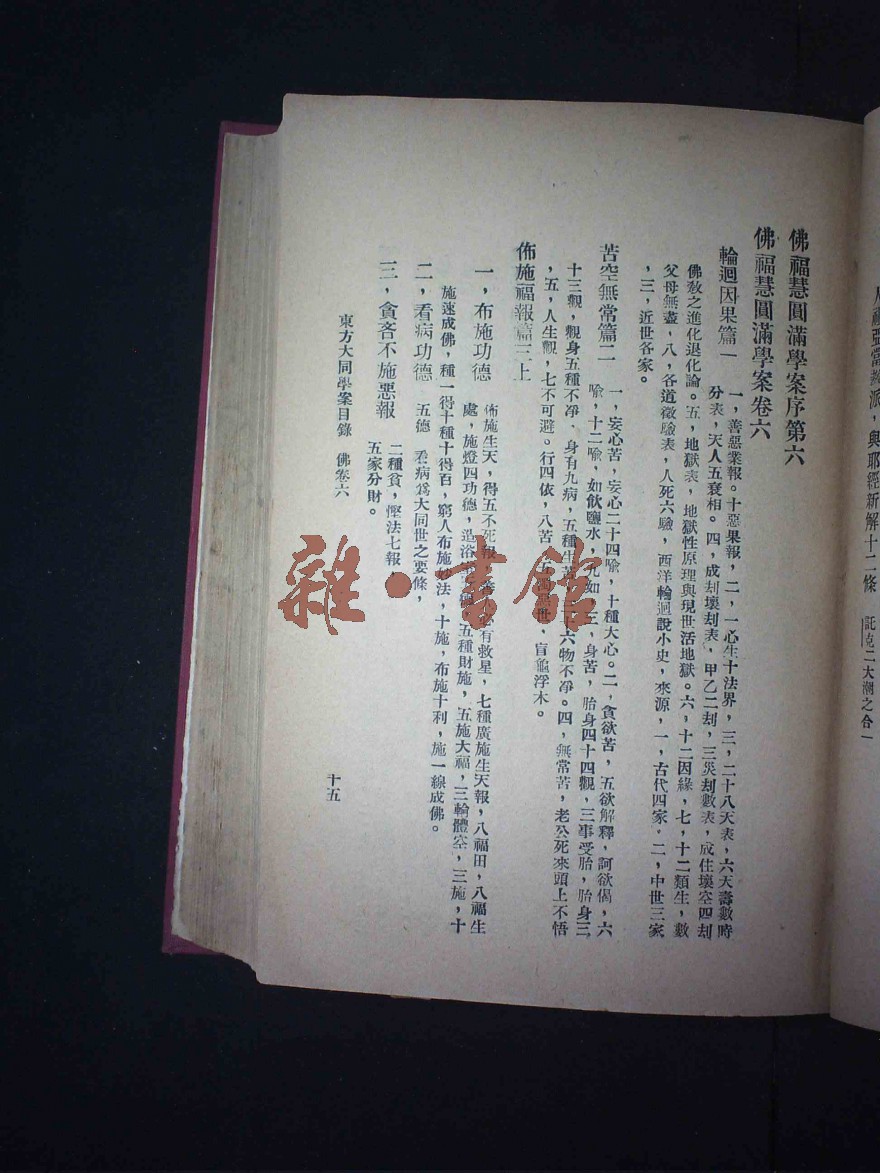 人種亞當教派,與耶經新解十二條 託克二大潮之合一
佛福慧圓滿學案序第六
佛福慧圓滿學案卷六
輪迴因果篇一
一,善惡業報。十惡果報,二,一心生十法界,三,二十八天表,六天壽數時
分表,天人五衰相。四,成刦壞刦表,甲乙二刦,三災刦數表,成住壞空四刦
佛教之進化退化論。五,地獄表,地獄性原理與現世活地獄。六,十二因緣,七,十二類生,數
父母無盡,八,各道徵驗表,人死六驗,西洋輪迴說小史,來源,一,古代四家。二,中世三家
,三,近世各家。
苦空無常篇二
一,妄心苦,妄心二十四喻,十種大心。二,貪欲苦,五欲解釋,訶欲偈,六
喻,十二喻,如飲鹽水,九如,三,身苦,胎身四十四觀,三事受胎,胎身三
十三觀,觀身五種不淨,身有九病,五種生苦,三十六物不淨。四,無常苦,老公死來頭上不悟
,五,人生觀,七不可避。行四依,八苦,五濁惡世,盲龜浮木。
佈施福報篇三上
一,布施功德
佈施生天,得五不死報,善心必有救星,七種廣施生天報,八福田,八福生
處,施燈四功德,造浴室功德,五種財施,五施大福,三輪體空,三施,十
施速成佛,種一得十種十得百,窮人布施妙法,十施,布施十利,施一線成佛。
二,看病功德
五德 看病爲大同世之要條,
三,貪吝不施惡報
二種貧,慳法七報
五家分財。
東方大同學案目錄 佛卷六
十五
雜·書館